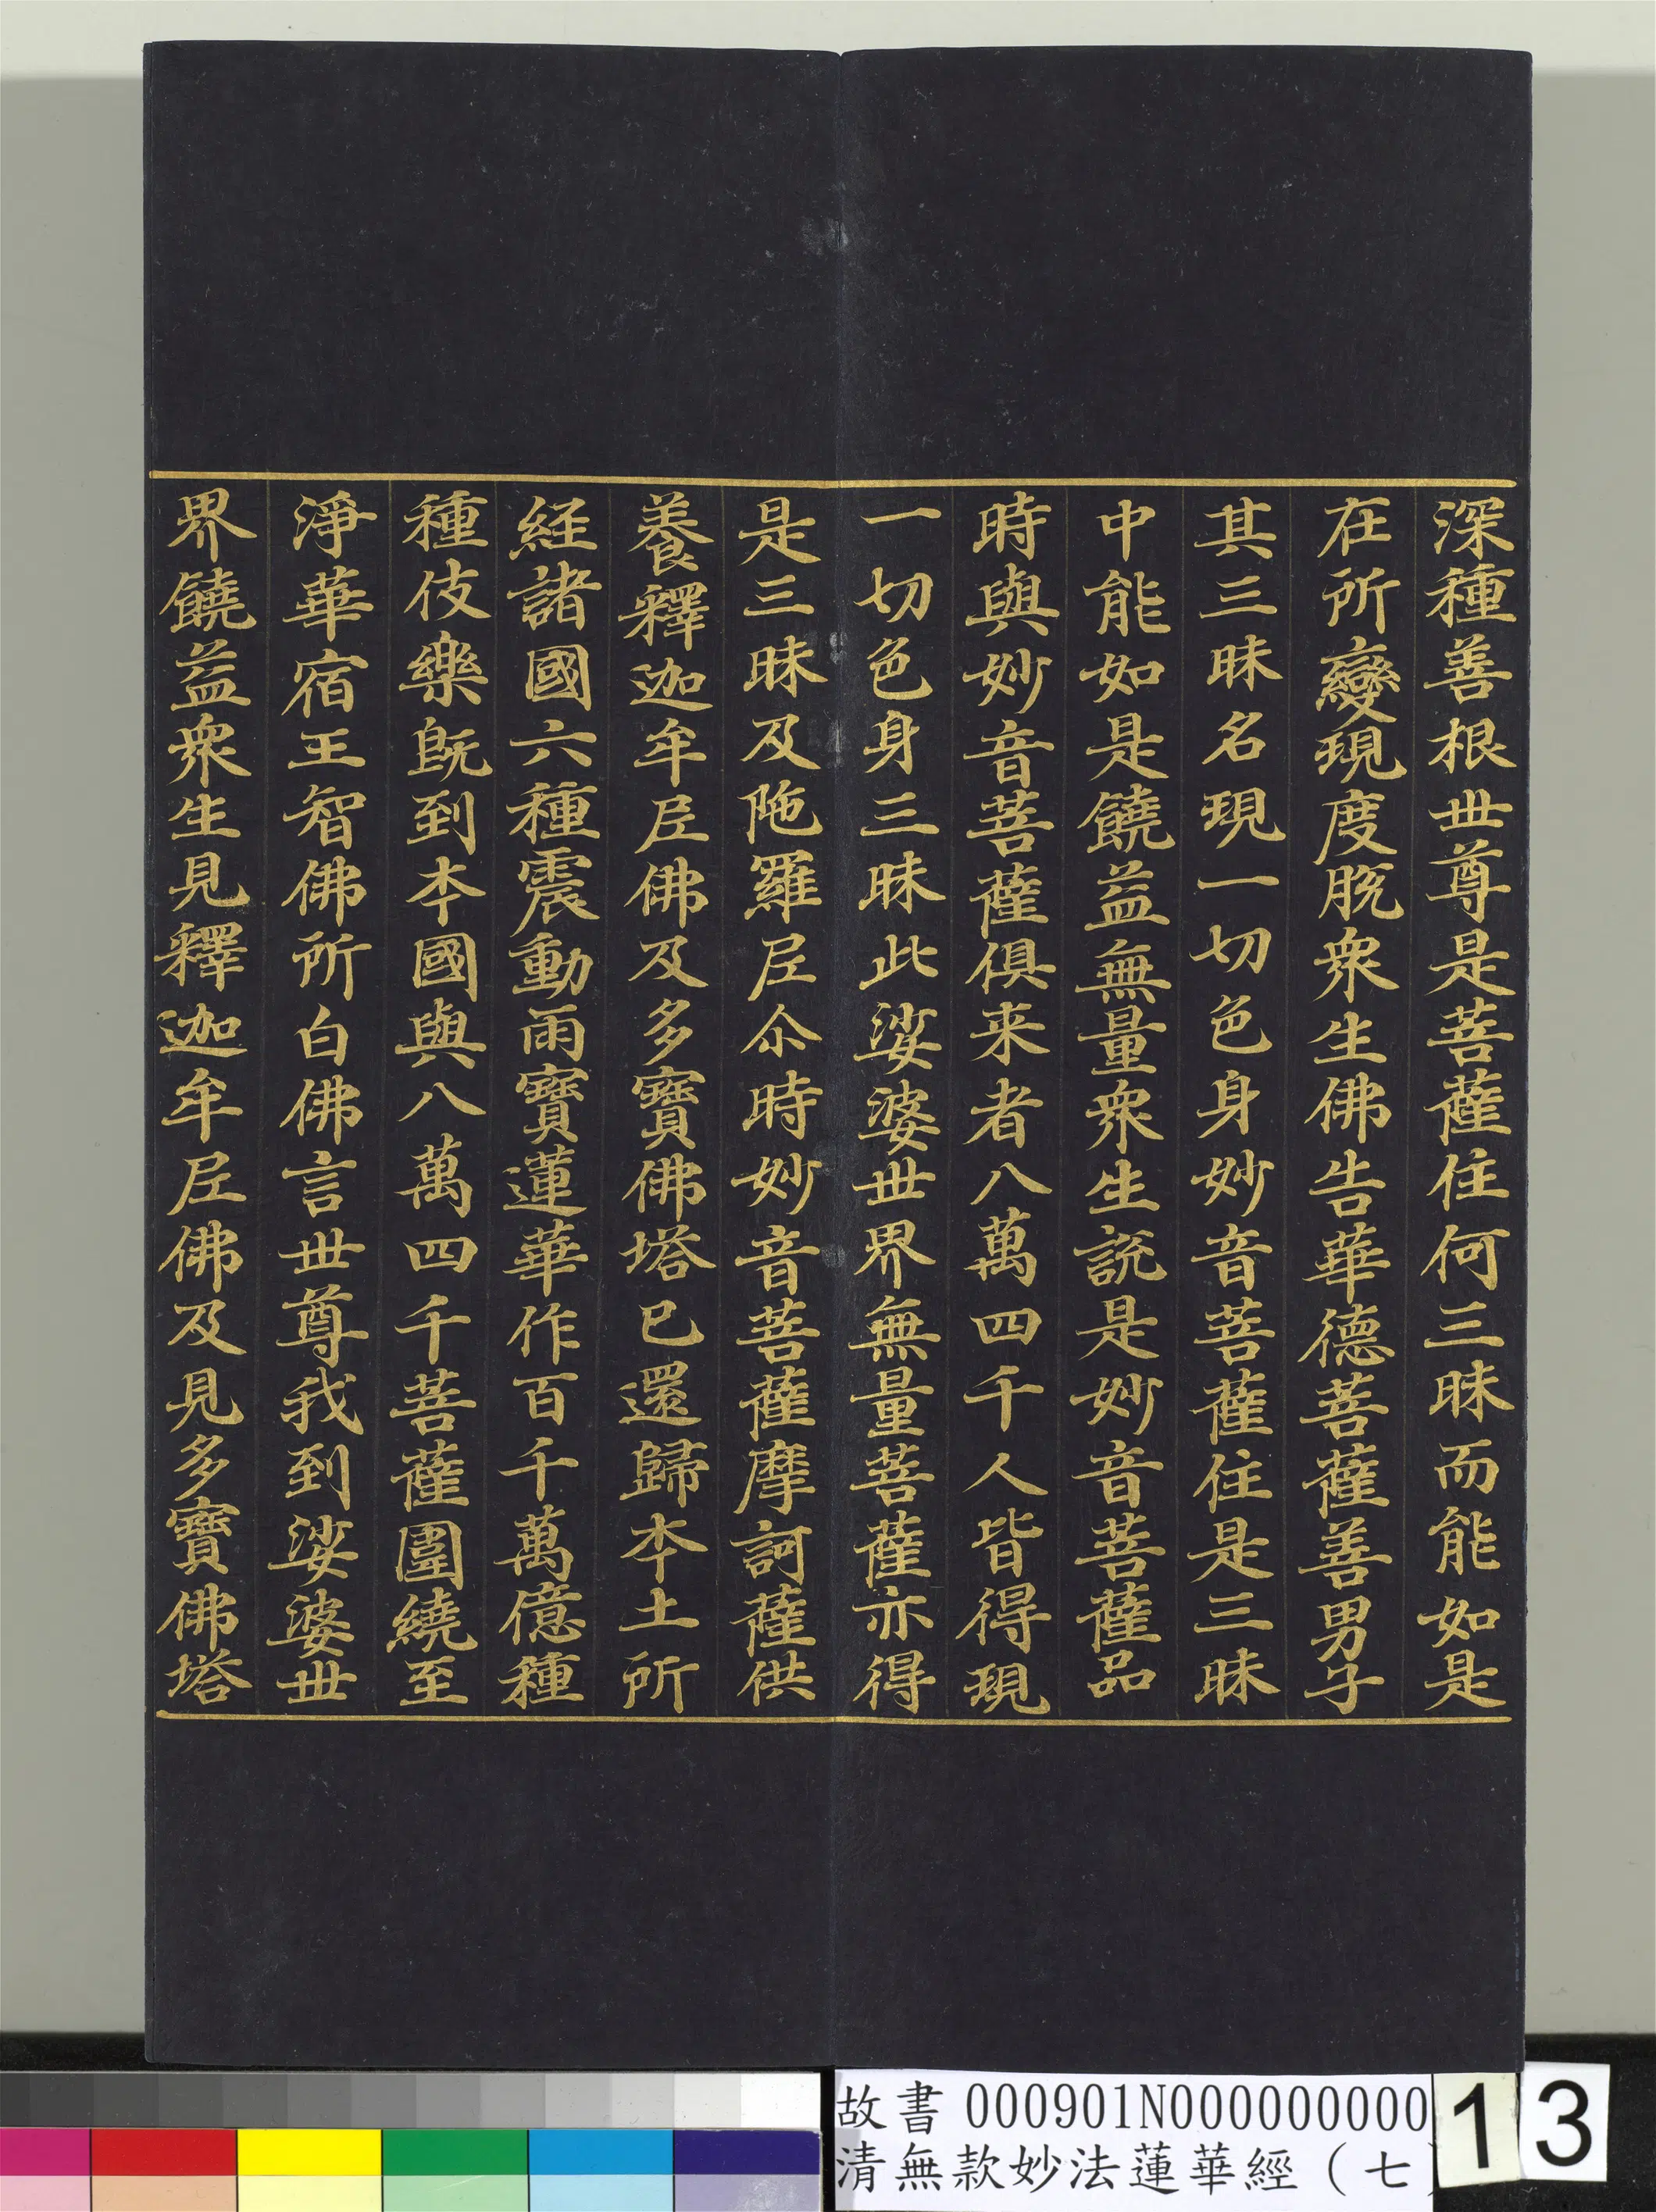 深種善根世尊是菩薩住何三昧而能如是
在所變現度脫衆生佛告華德菩薩善男子
其三昧名現一切色身妙音菩薩住是三昧
中能如是饒益無量衆生說是妙音菩薩品
時與妙音菩薩俱来者八萬四千人皆得現
一切色身三昧此娑婆世界無量菩薩亦得
是三昧及陁羅尼尒時妙音菩薩摩訶薩供
養釋迦牟尼佛及多寶佛塔已還歸本土所
経諸國六種震動雨寶蓮華作百千萬億種
種伎樂旣到本國與八萬四千菩薩圍繞至
淨華宿王智佛所白佛言世尊我到娑婆世
界饒益衆生見釋迦牟尼佛及見多寶佛塔
故書 000901N000000000
清無款妙法蓮華經（七
13